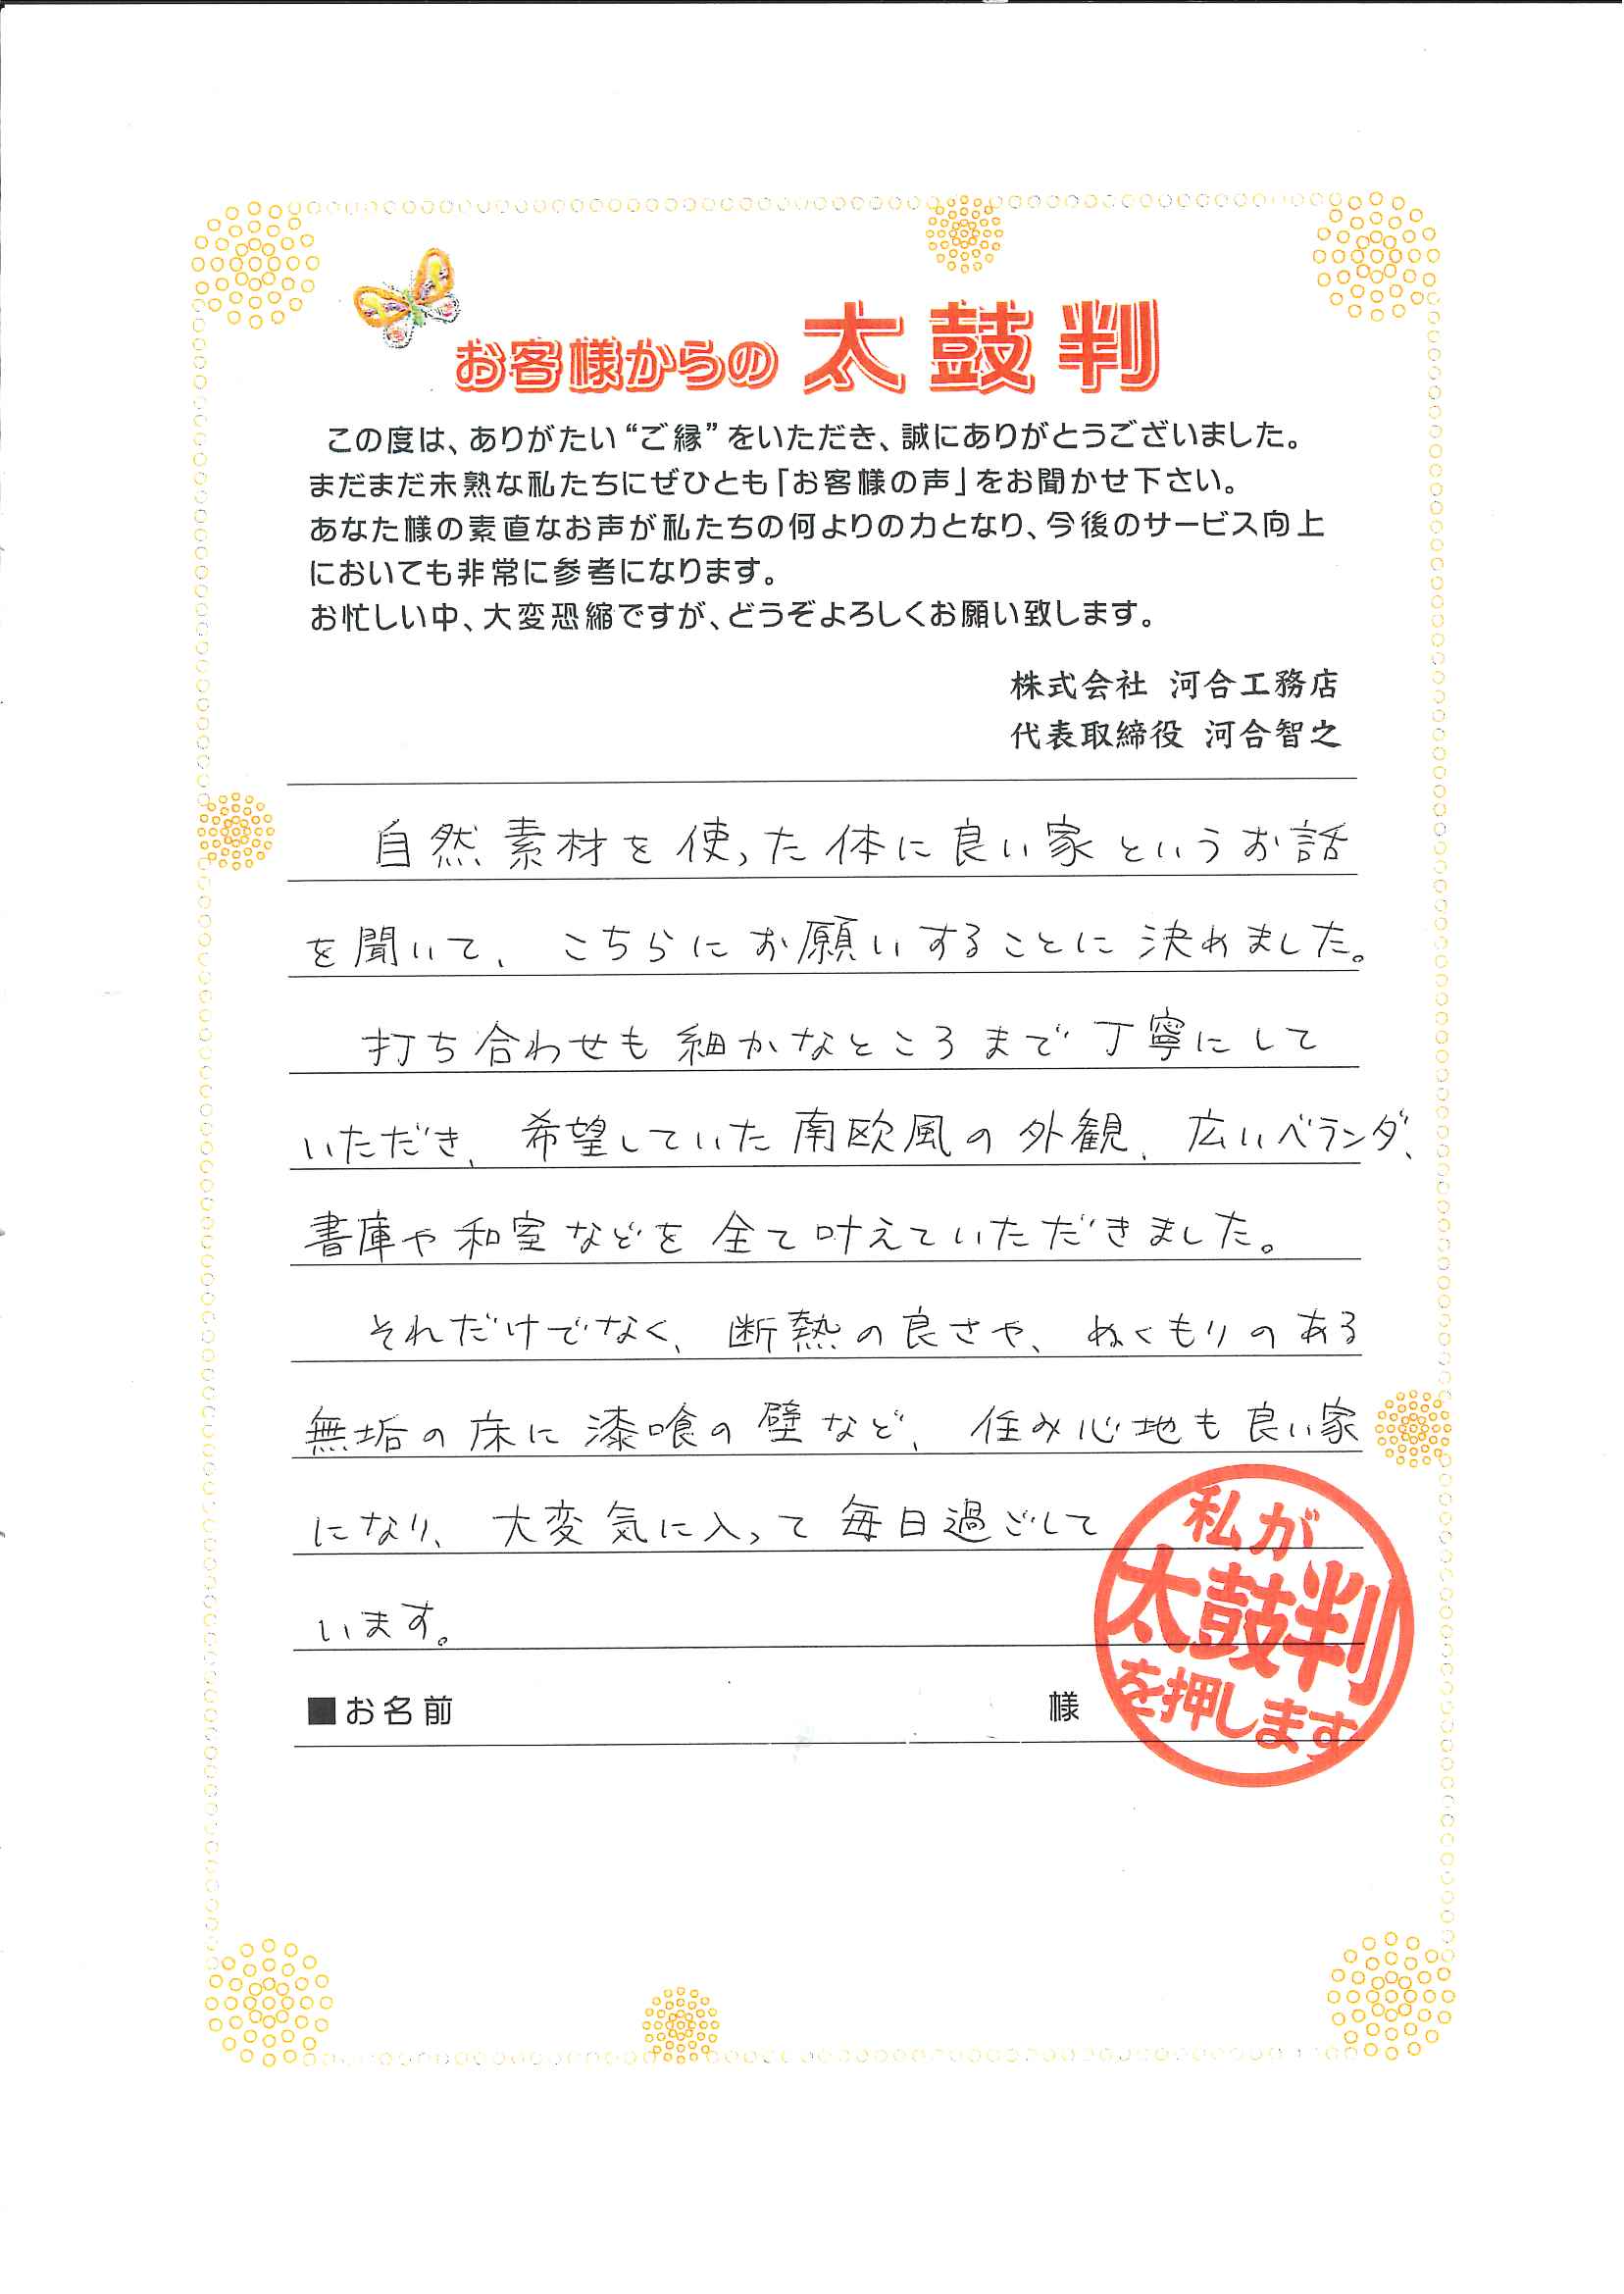 お客様からの太鼓判
この度は、ありがたい“ご縁”をいただき、誠にありがとうございました。
まだまだ未熟な私たちにぜひとも「お客様の声」をお聞かせ下さい。
あなた様の素直なお声が私たちの何よりの力となり、今後のサービス向上
においても非常に参考になります。
お忙しい中、大変恐縮ですが、どうぞよろしくお願い致します。
株式会社 河合工務店
代表取締役 河合智之
自然素材を使った体に良い家というお話
を聞いて、こちらにお願いすることに決めました。
打ち合わせも細かなところまで丁寧にして
いただき、希望していた南欧風の外観、広いベランダ、
書庫や和室などを全て叶えていただきました。
それだけでなく、断熱の良さや、ぬくもりのある
無垢の床に漆喰の壁など、住み心地も良い家
になり、大変気に入って毎日過ごして
います。
■お名前 様
私が
太鼓判
を押します